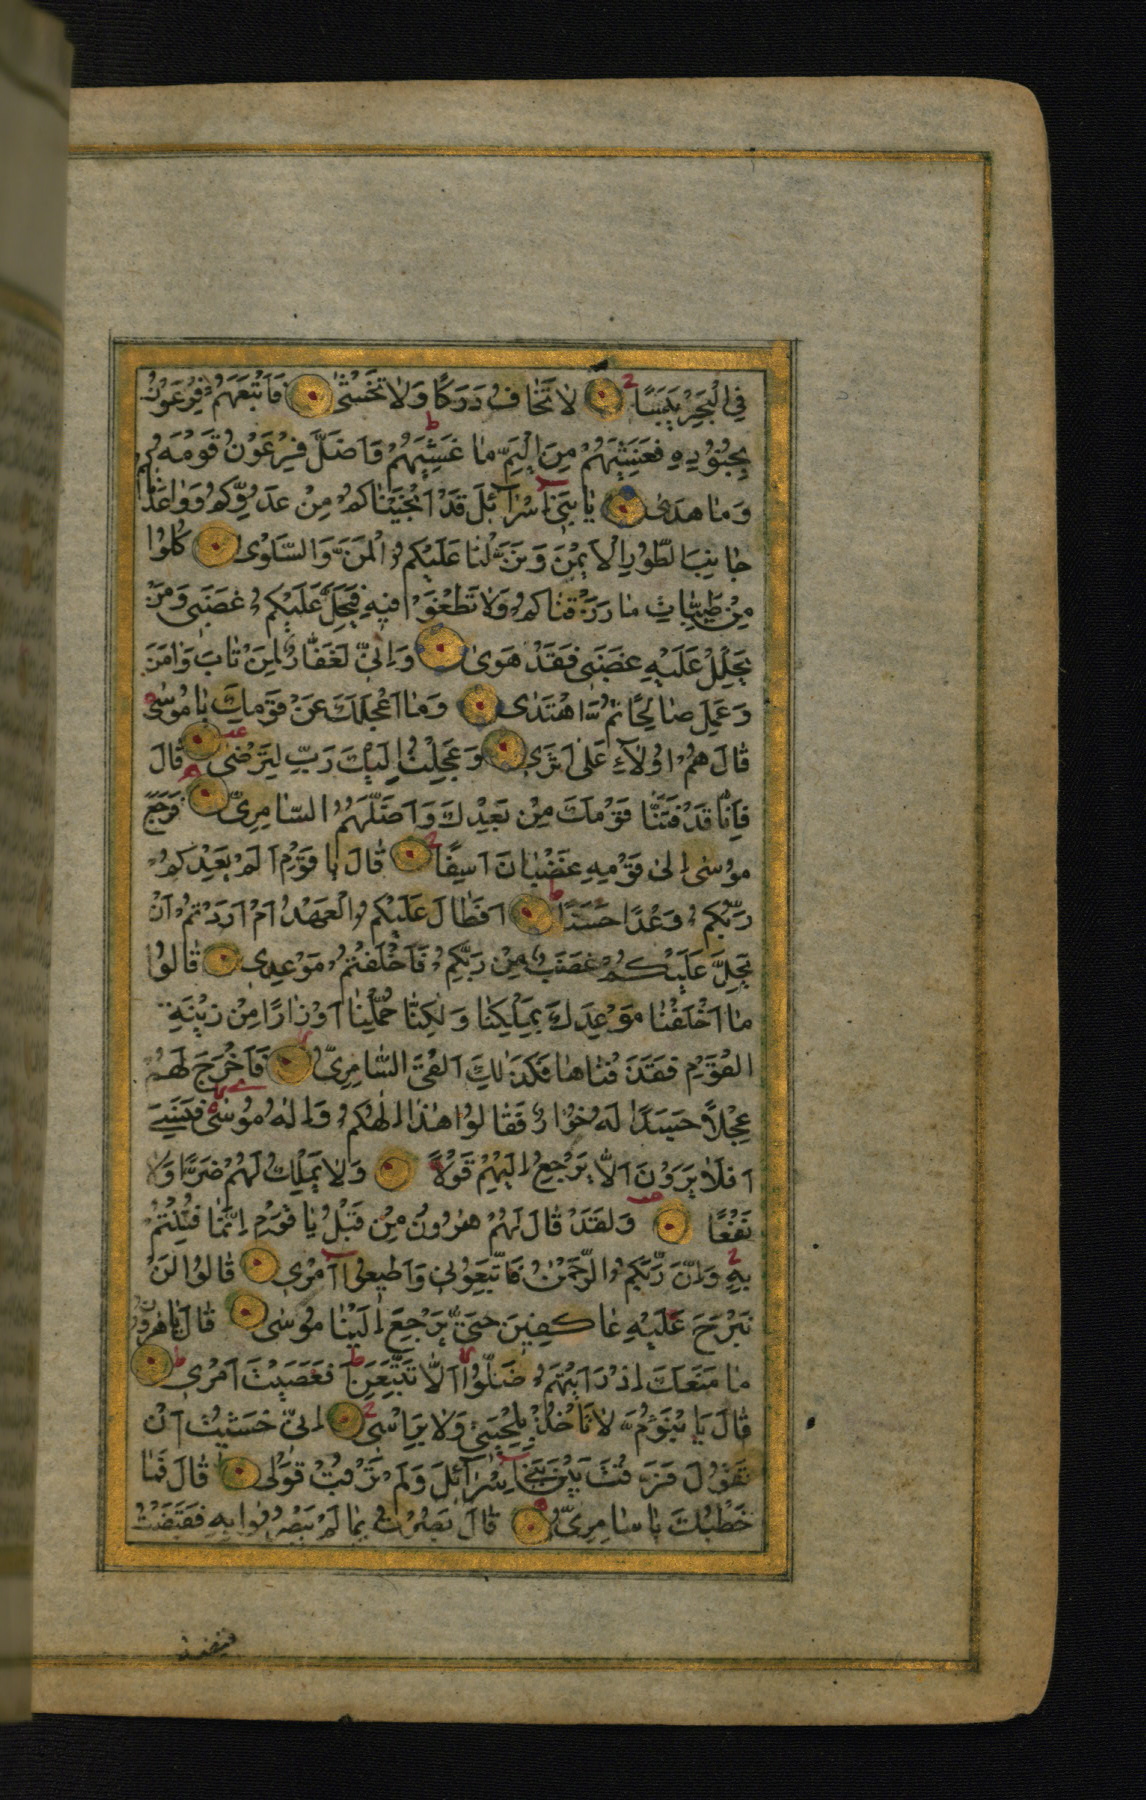 فِي الْبَحْرِ يَبَسًا لَا تَخَافُ دَرَكًا وَلَا تَخْشٰى فَاَتْبَعَهُمْ فِرْعَوْنُ
بِجُنُودِهٖ فَغَشِيَهُمْ مِنَ الْيَمِّ مَا غَشِيَهُمْ وَاَضَلَّ فِرْعَوْنُ قَوْمَهُ
وَمَا هَدٰى يَا بَنِي اِسْرَآئِلَ قَدْ اَنْجَيْنَاكُمْ مِنْ عَدُوِّكُمْ وَوَاعَدْنَاكُمْ
جَانِبَ الطُّورِ الْاَيْمَنَ وَنَزَّلْنَا عَلَيْكُمُ الْمَنَّ وَالسَّلْوٰى كُلُوا
مِنْ طَيِّبَاتِ مَا رَزَقْنَاكُمْ وَلَا تَطْغَوْا فِيهِ فَيَحِلَّ عَلَيْكُمْ غَضَبِي وَمَنْ
يَحْلِلْ عَلَيْهِ غَضَبِي فَقَدْ هَوٰى وَاِنِّي لَغَفَّارٌ لِمَنْ تَابَ وَاٰمَنَ
وَعَمِلَ صَالِحًا ثُمَّ اهْتَدٰى وَمَا اَعْجَلَكَ عَنْ قَوْمِكَ يَا مُوسٰى
قَالَ هُمْ اُولَآءِ عَلٰى اَثَرِي وَعَجِلْتُ اِلَيْكَ رَبِّ لِتَرْضٰى قَالَ
فَاِنَّا قَدْ فَتَنَّا قَوْمَكَ مِنْ بَعْدِكَ وَاَضَلَّهُمُ السَّامِرِيُّ فَرَجَعَ
مُوسٰى اِلٰى قَوْمِهٖ غَضْبَانَ اَسِفًا قَالَ يَا قَوْمِ اَلَمْ يَعِدْكُمْ
رَبُّكُمْ وَعْدًا حَسَنًا اَفَطَالَ عَلَيْكُمُ الْعَهْدُ اَمْ اَرَدْتُمْ اَنْ
يَحِلَّ عَلَيْكُمْ غَضَبٌ مِنْ رَبِّكُمْ فَاَخْلَفْتُمْ مَوْعِدِي قَالُوا
مَا اَخْلَفْنَا مَوْعِدَكَ بِمَلْكِنَا وَلٰكِنَّا حُمِّلْنَا اَوْزَارًا مِنْ زِينَةِ
الْقَوْمِ فَقَذَفْنَاهَا فَكَذٰلِكَ اَلْقَى السَّامِرِيُّ فَاَخْرَجَ لَهُمْ
عِجْلًا جَسَدًا لَهُ خُوَارٌ فَقَالُوا هٰذَا اِلٰهُكُمْ وَاِلٰهُ مُوسٰى فَنَسِيَ
اَفَلَا يَرَوْنَ اَلَّا يَرْجِعُ اِلَيْهِمْ قَوْلًا وَلَا يَمْلِكُ لَهُمْ ضَرًّا وَلَا
نَفْعًا وَلَقَدْ قَالَ لَهُمْ هٰرُونُ مِنْ قَبْلُ يَا قَوْمِ اِنَّمَا فُتِنْتُمْ
بِهٖ وَاِنَّ رَبَّكُمُ الرَّحْمٰنُ فَاتَّبِعُونِي وَاَطِيعُوا اَمْرِي قَالُوا لَنْ
نَبْرَحَ عَلَيْهِ عَاكِفِينَ حَتّٰى يَرْجِعَ اِلَيْنَا مُوسٰى قَالَ يَا هٰرُونُ
مَا مَنَعَكَ اِذْ رَاَيْتَهُمْ ضَلُّوا اَلَّا تَتَّبِعَنِ اَفَعَصَيْتَ اَمْرِي
قَالَ يَا بْنَؤُمَّ لَا تَاْخُذْ بِلِحْيَتِي وَلَا بِرَاْسِي اِنِّي خَشِيتُ اَنْ
تَقُولَ فَرَّقْتَ بَيْنَ بَنِي اِسْرَآئِلَ وَلَمْ تَرْقُبْ قَوْلِي قَالَ فَمَا
خَطْبُكَ يَا سَامِرِيُّ قَالَ بَصُرْتُ بِمَا لَمْ يَبْصُرُوا بِهٖ فَقَبَضْتُ
فقبضت